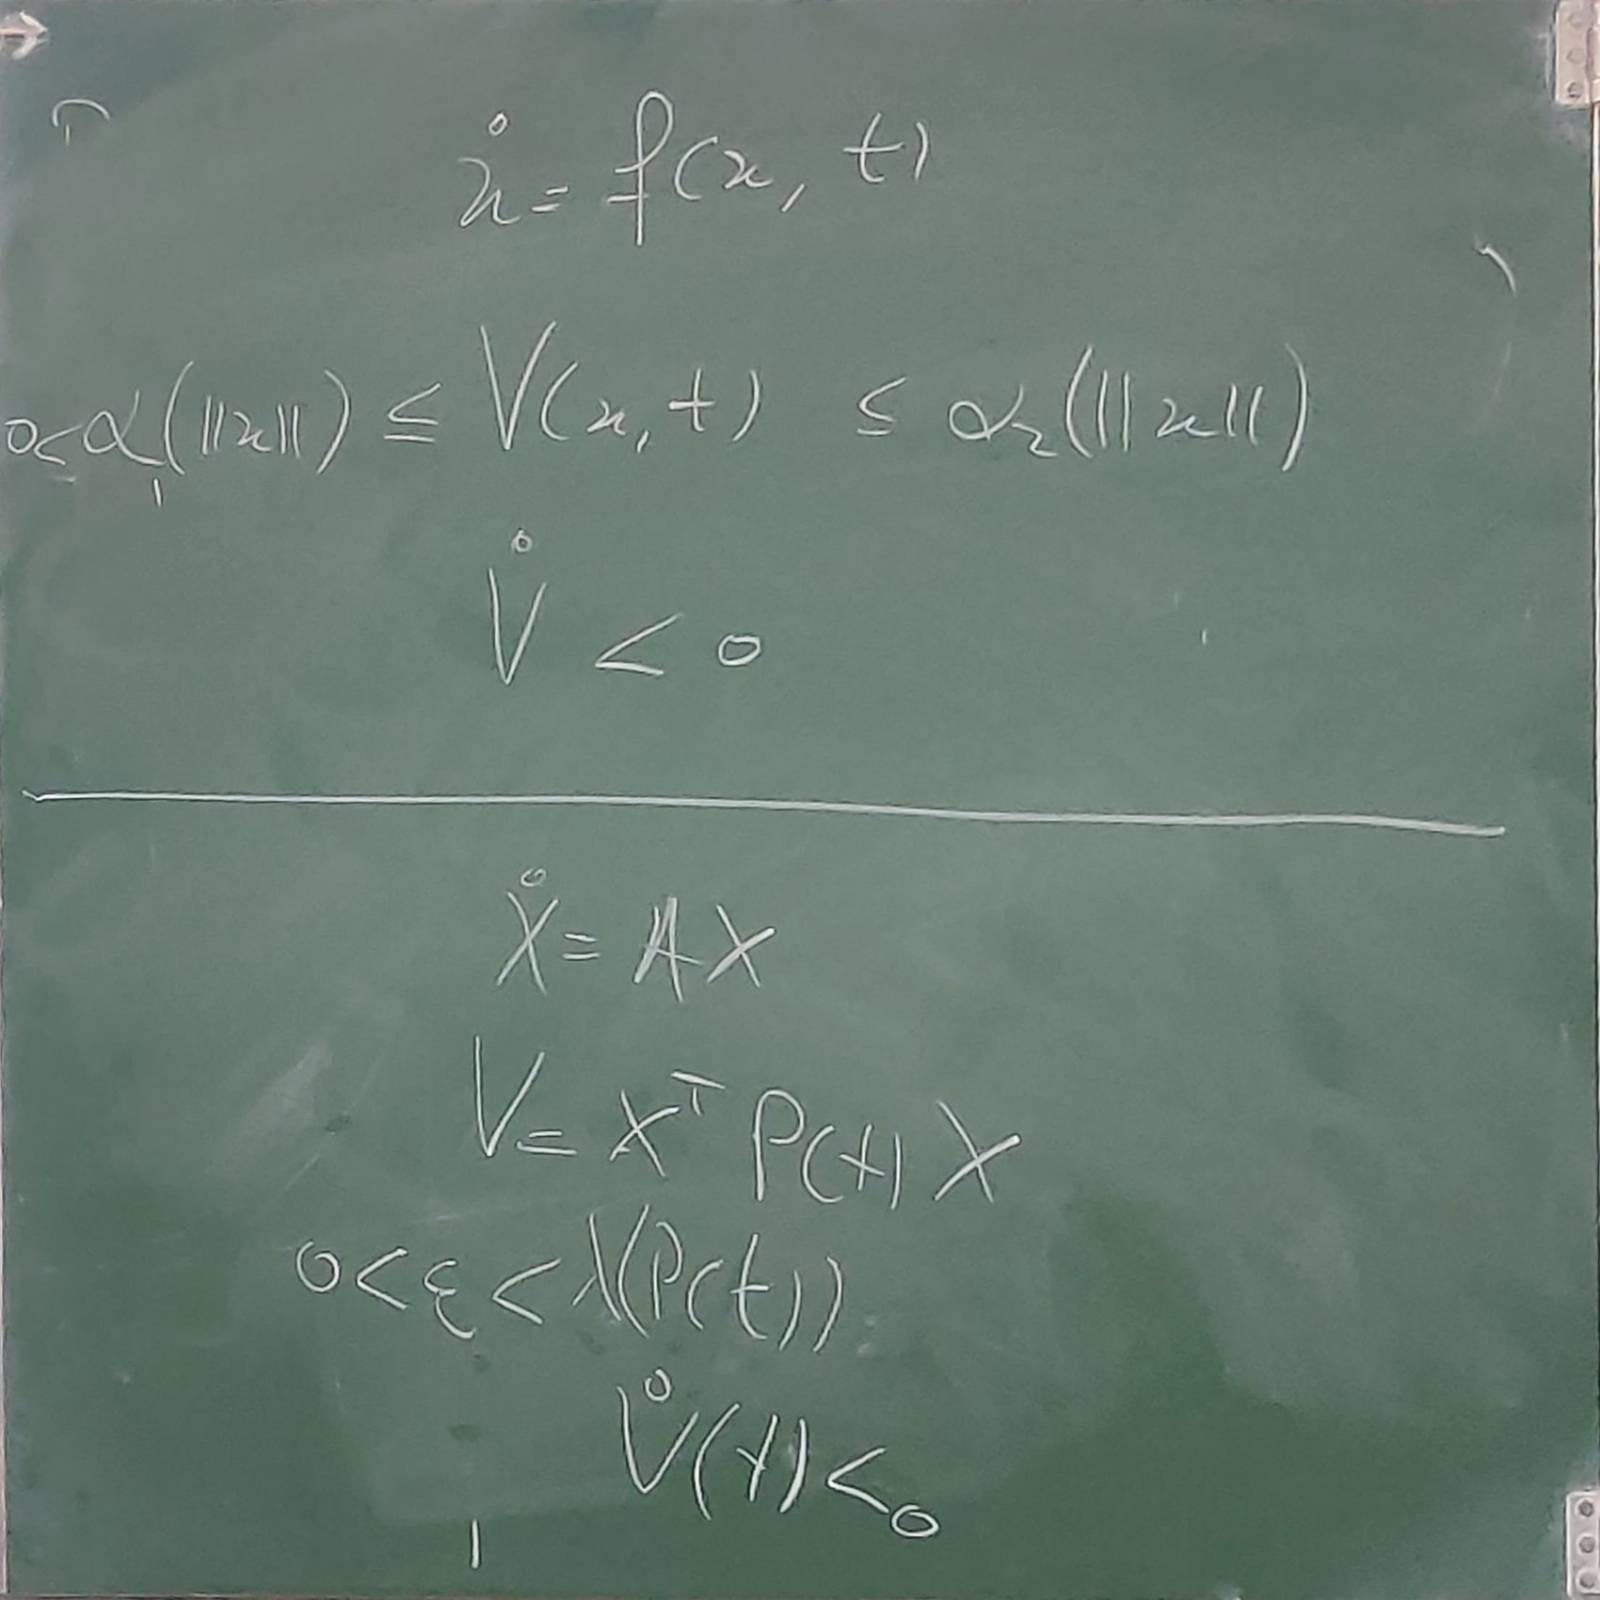 ẋ = f(x, t)
0 < α₁(||x||) ≤ V(x,t) ≤ α₂(||x||)
V̇ < 0
Ẋ = AX
V = Xᵀ P(t) X
0 < ε < λ(P(t))
V̇(t) < 0